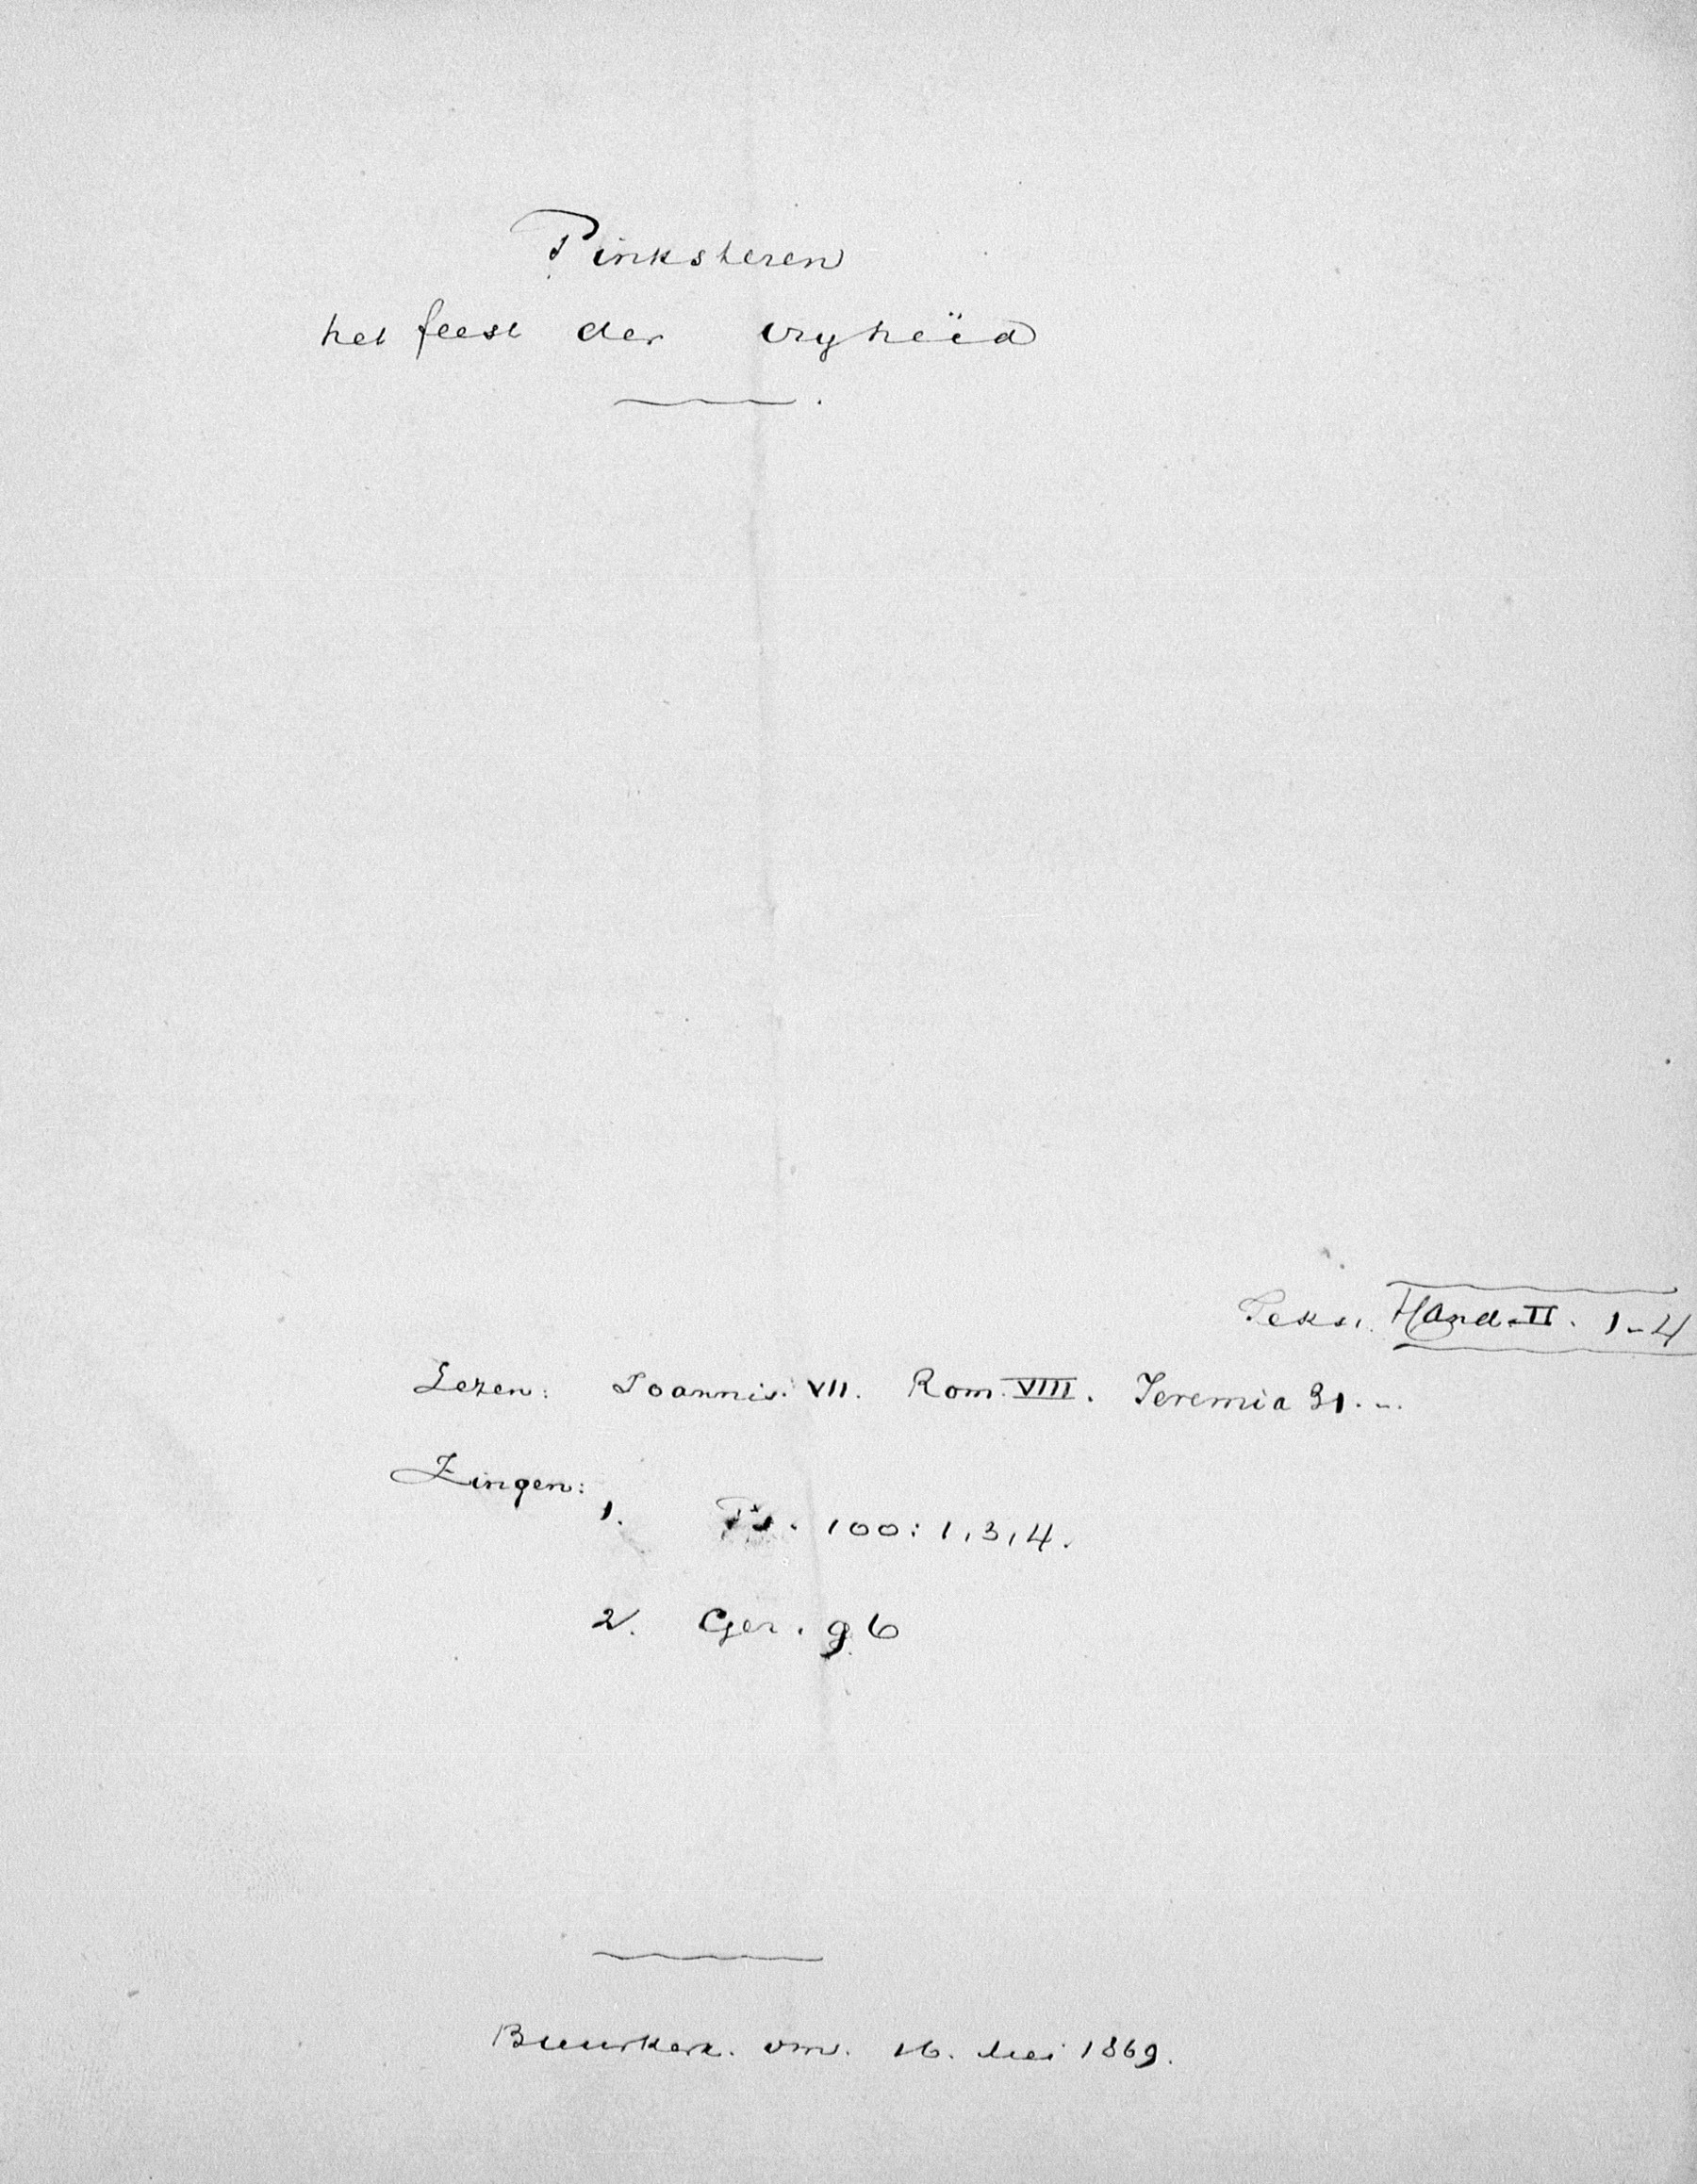 Pinksteren
het feest der vryheid
Tekst. Hand. II. 1-4
Lezen: Joannis. VII. Rom. VIII. Jeremia 31. -.
Zingen:
1. Ps. 100: 1, 3, 4.
2. Gez. 96
Buurkerk. vm. 16. Mei 1869.